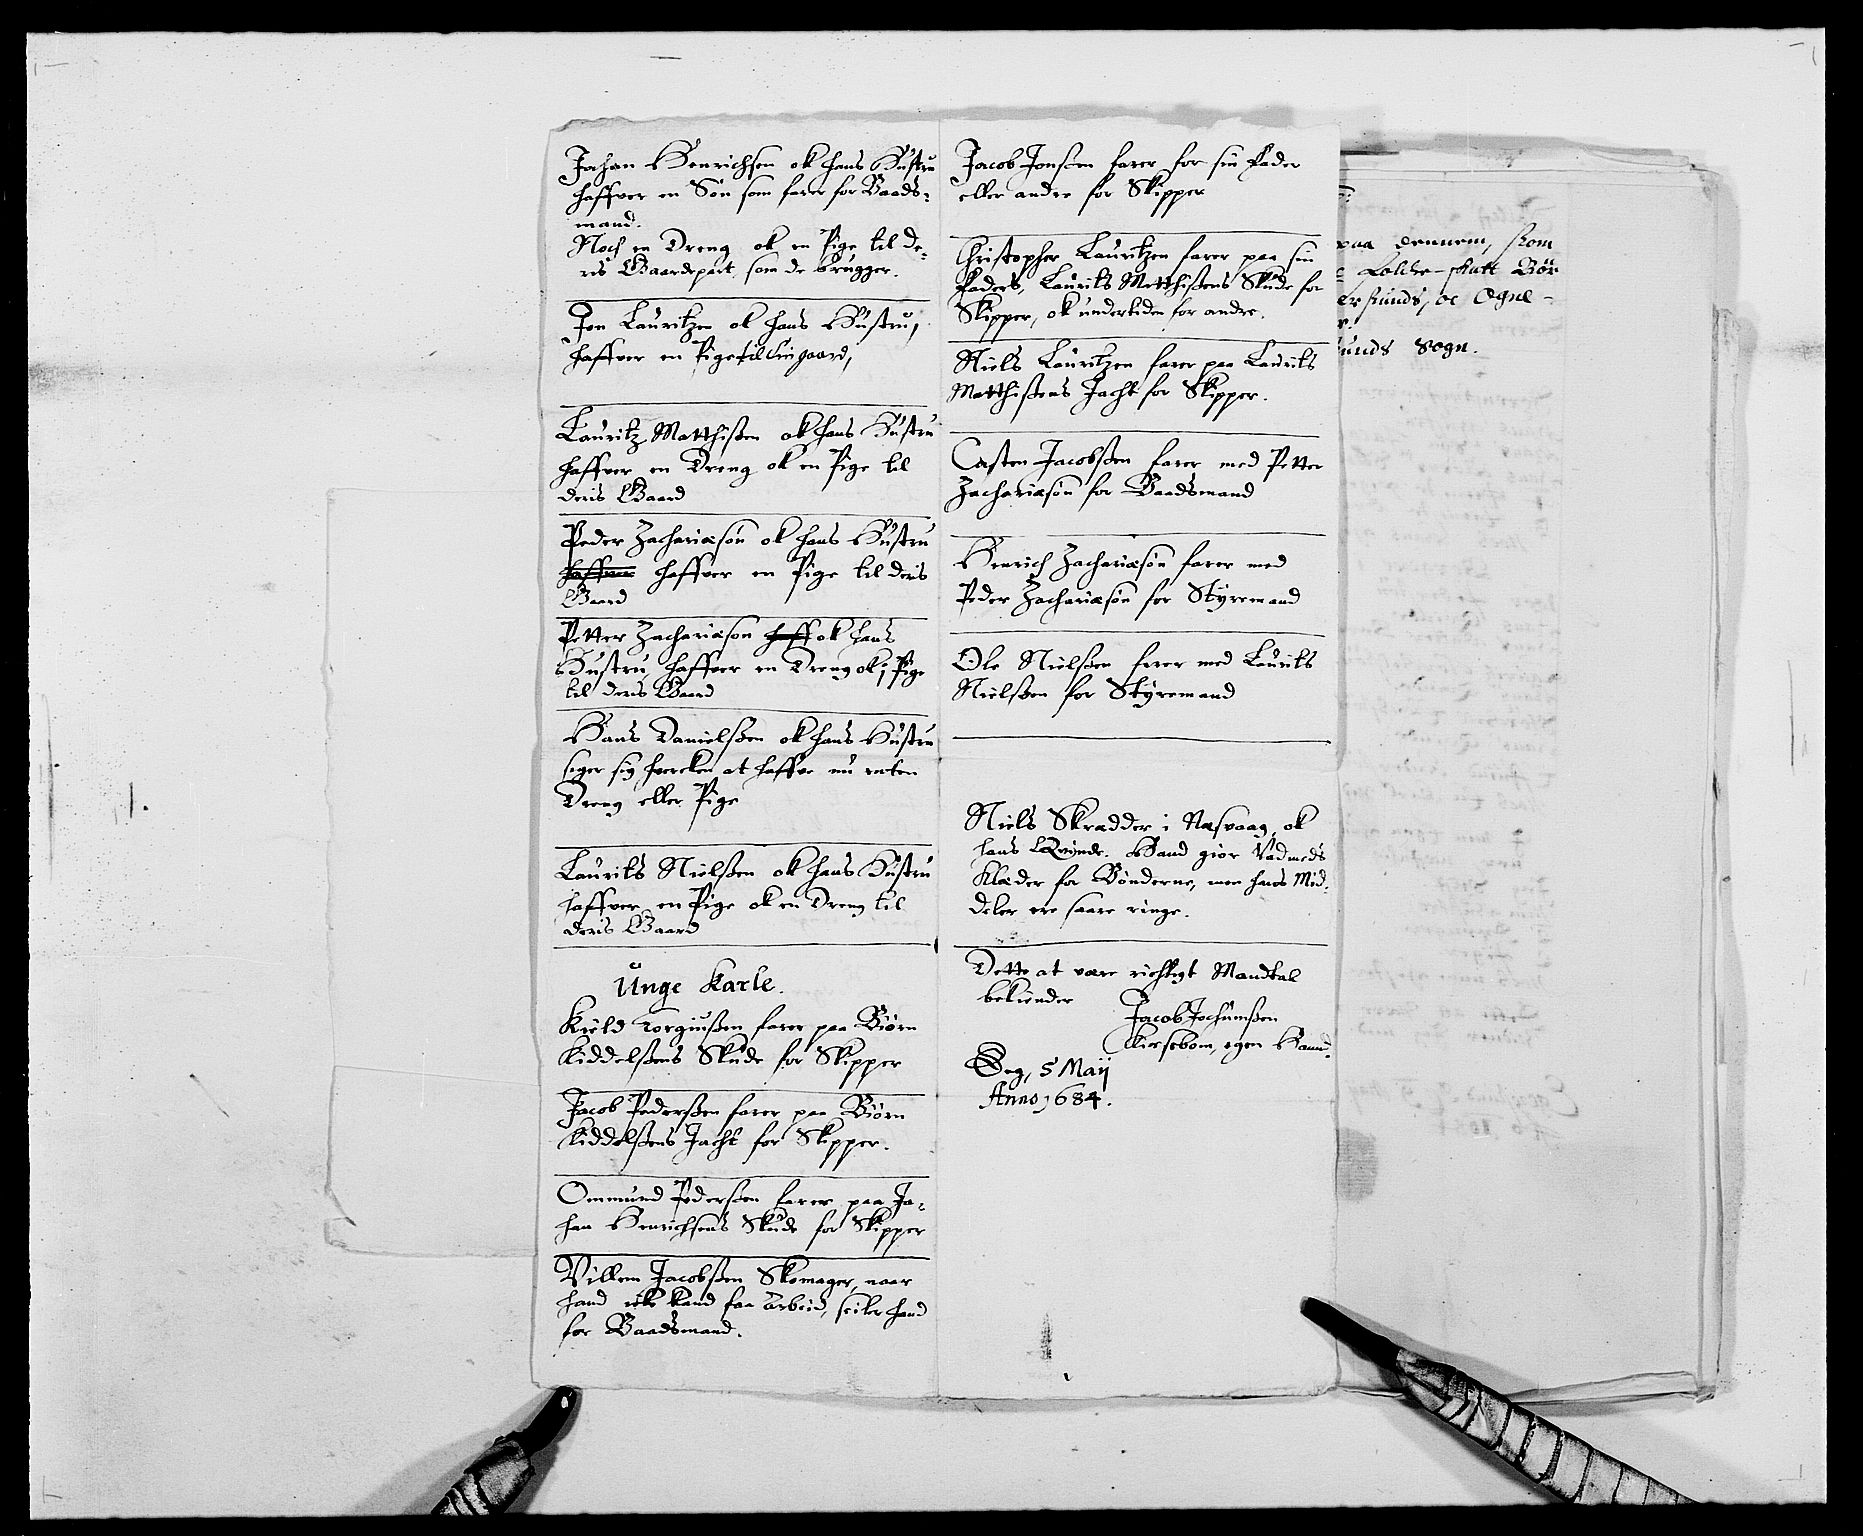 Johan Henrichsen ok hans Hustru
haffver en Søn som farer for Baads-
mand.
Noch en Dreng ok en Pige til de-
ris Gaardepart, som de brugger.
Jon Lauritzen ok hans Hustru,
haffver en Pige til sin gaard,
Lauritz Matthißen ok hans Hustru
haffver en Dreng ok en Pige til
deris Gaard
Peder Zachariæsøn ok hans Hustru
haffver haffver en Pige til deris
Gaard
Petter Zachariæson haff ok hans
Hustru, haffver en Dreng ok 1 Pige
til deris Gaard
Hans Danielsßen ok hans Hustru
siger sig hvercken at haffve nu enten
Dreng eller Pige
Laurits Nielsßen ok hans Hustru
haffver en Pige ok en Dreng til
deris Gaard
Unge Karle.
Kield Torgiusßen farer paa Biørn
Kiddelsßens Skude for Skipper
Jacob Pedersßen farer paa Biørn
Kiddelsßens Jacht for Skipper.
Ommund Pedersßen farer paa Jo-
han Henrichsens Skude for Skipper
Villem Jacobsßen Skomager, naar
hand icke kand faa Arbeid, seiler hand
for Baadsmand.
Jacob Jonsßen farer for sin Fader
eller andre for Skipper
Christopher Lauritzen farer paa sin
Faders, Laurits Matthißens Skude for
Skipper, ok undertiden for andre.
Niels Lauritzen farer paa Laurits
Matthißens Jacht for Skipper.
Casten Jacobsßen farer med Petter
Zachariæsøn for Baadsmand
Henrich Zachariæsøn farer med
Peder Zachariæsøn for Styremand
Ole Nielsßen farer med Laurits
Nielsßen for Styremand
Niels Skrædder i Næsvaag, ok
hans Qvinde. Hand giør Vadmels
Klæder for Bønderne, men hans Mid-
deler ere saare ringe.
Dette at være richtigt Mandtal
bekiender
Jacob Jochumsßen
Kirsebom, egen Haand.
Sog, 5 Maij
Anno 1684.
paa dennem, som
Folche-skatt Bør
ersunds, oc Ogne-
unds Sogn.